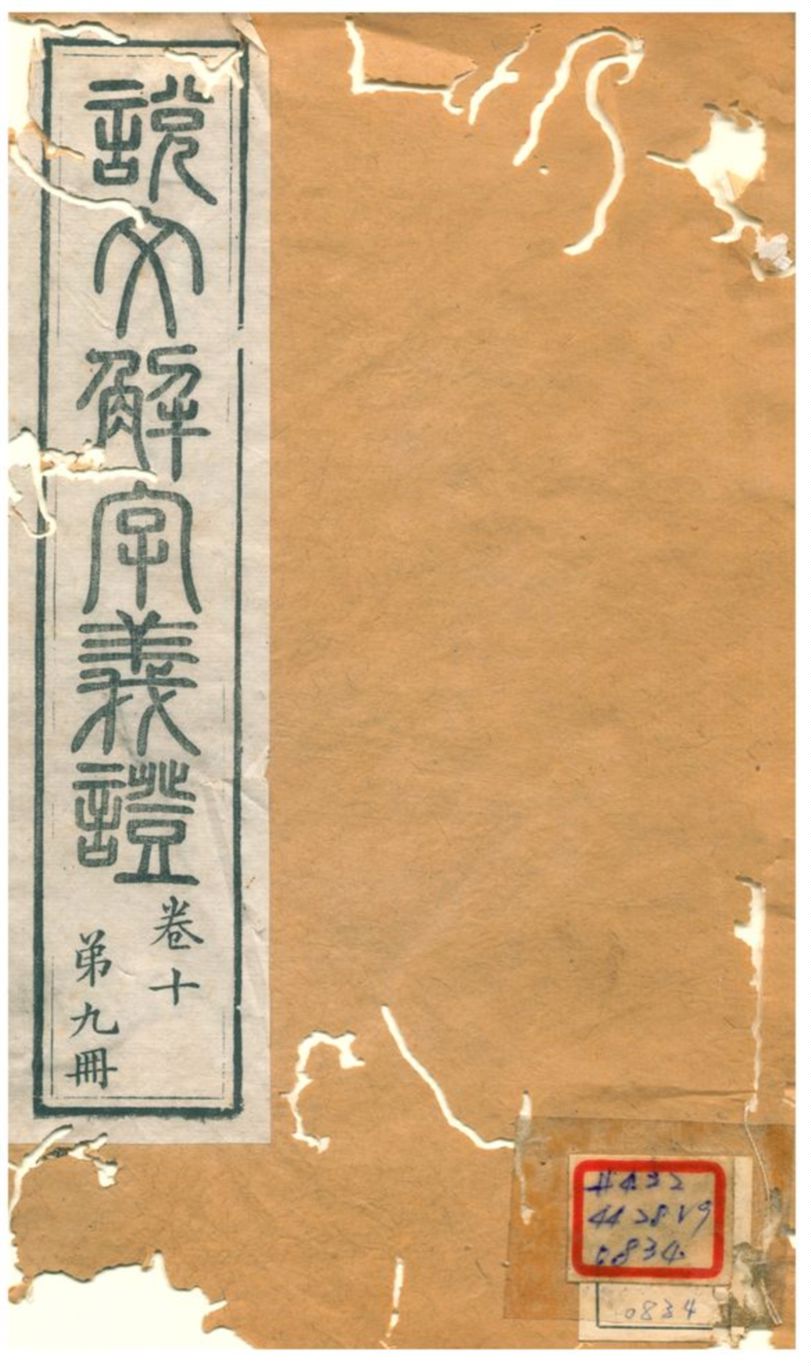 說文解字義證
卷十
弟九冊
H432
4428V9
0834
0834